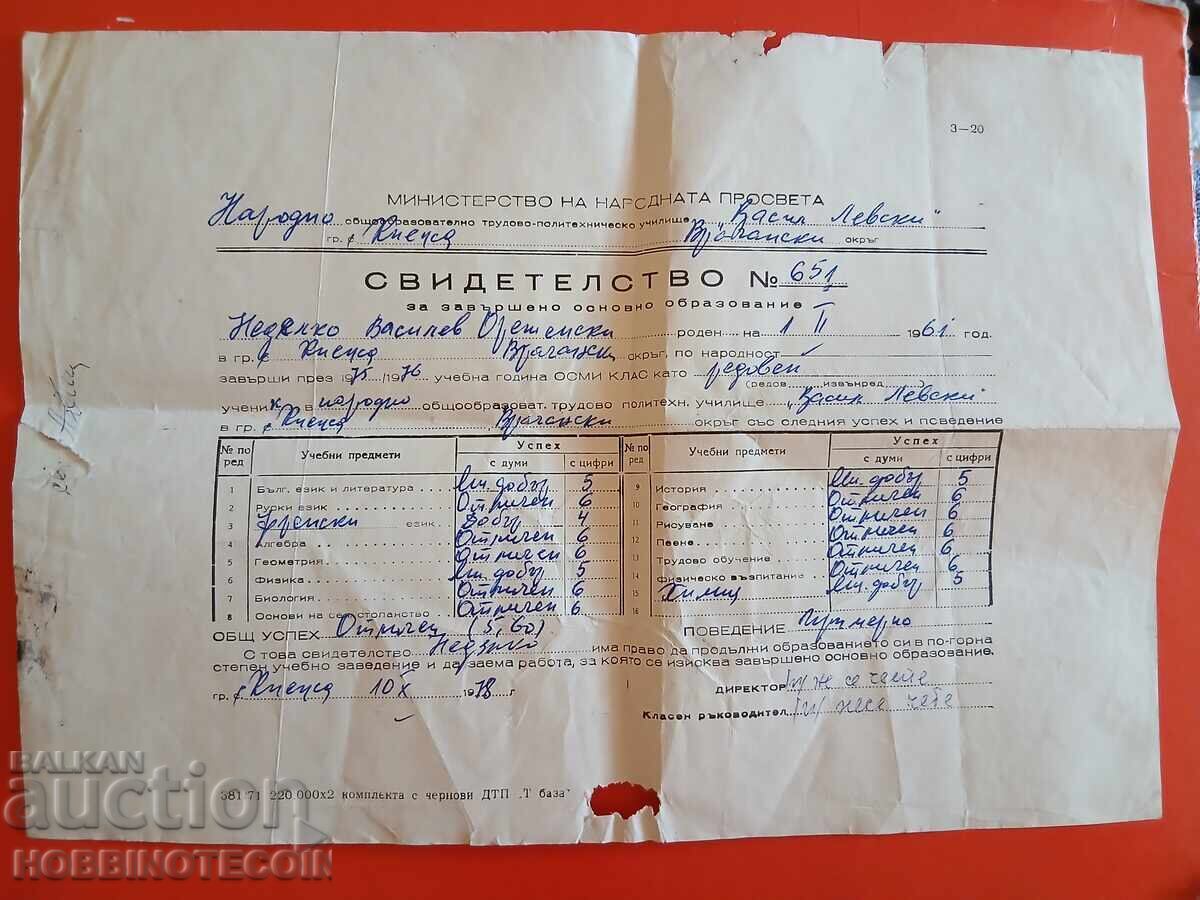 3—20
МИНИСТЕРСТВО НА НАРОДНАТА ПРОСВЕТА
Народно общообразователно трудово-политехническо училище „Васил Левски"
гр. с Кнежа Врачански окръг
СВИДЕТЕЛСТВО № 651
за завършено основно образование
Недялко Василев роден на 1 II 1961 год.
в гр. с Кнежа Врачански окръг, по народност
завърши през 1975/1976 учебна година ОСМИ КЛАС като редовен
(редов. извънред.)
ученик в народно общообразоват. трудово политехн. училище „Васил Левски"
в гр. с Кнежа Врачански окръг със следния успех и поведение
№ по ред Учебни предмети Успех с думи с цифри № по ред Учебни предмети Успех с думи с цифри
1 Бълг. език и литература Мн. добър 5 9 История Мн. добър 5
2 Руски език Отличен 6 10 География Отличен 6
3 Френски език Добър 4 11 Рисуване Отличен 6
4 Алгебра Отличен 6 12 Пеене Отличен 6
5 Геометрия Отличен 6 13 Трудово обучение Отличен 6
6 Физика Мн. добър 5 14 Физическо възпитание Отличен 6
7 Биология Отличен 6 15 Химия Мн. добър 5
8 Основи на сел. стопанство Отличен 6 16
ОБЩ УСПЕХ Отличен (5,60) ПОВЕДЕНИЕ Примерно
С това свидетелство Недялко има право да продължи образованието си в по-горна
степен учебно заведение и да заема работа, за която се изисква завършено основно образование.
гр. с Кнежа 10 X 1978 г
ДИРЕКТОР (п) не се чете
Класен ръководител (п) не се чете
381 71 220.000x2 комплекта с чернови ДТП „Т база"
BALKAN
auction
HOBBINOTECOIN